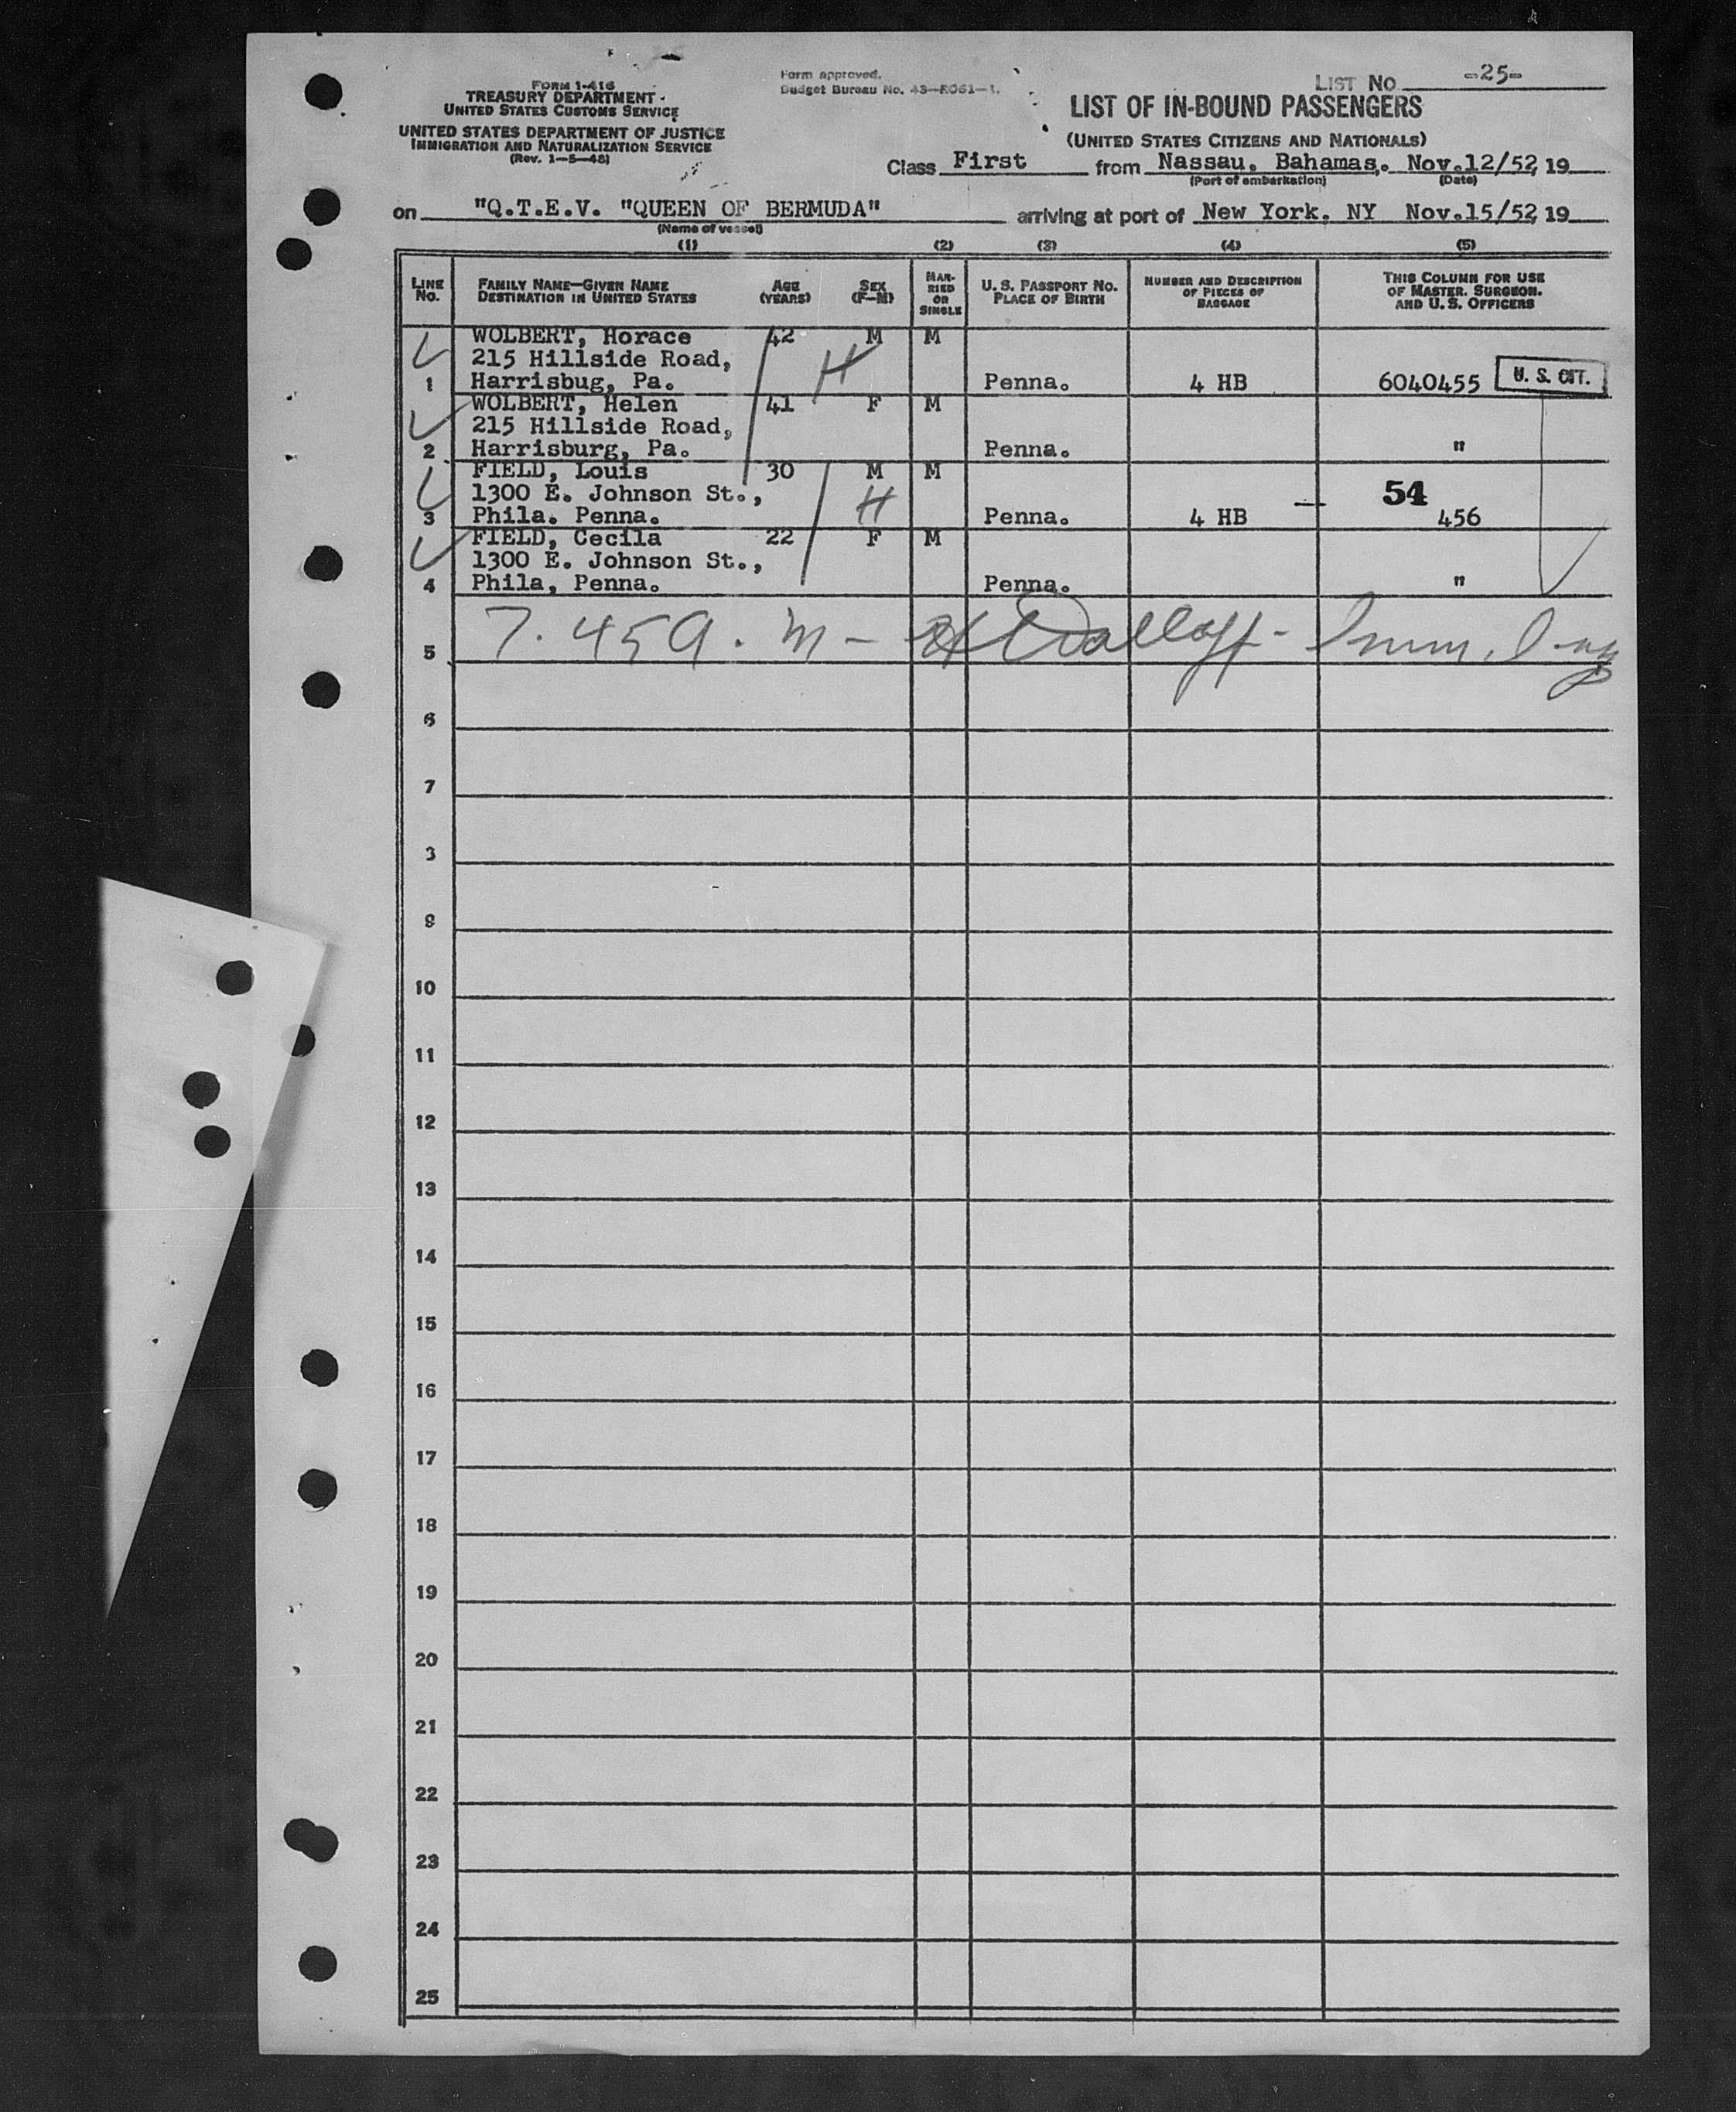 FORM I-416
TREASURY DEPARTMENT
UNITED STATES CUSTOMS SERVICE
UNITED STATES DEPARTMENT OF JUSTICE
IMMIGRATION AND NATURALIZATION SERVICE
(Rev. 1-5-48)
Form approved.
Budget Bureau No. 43-R061-1.
LIST NO. -25-
LIST OF IN-BOUND PASSENGERS
(UNITED STATES CITIZENS AND NATIONALS)
Class First from Nassau, Bahamas, Nov.12/52, 19
(Port of embarkation) (Date)
on "Q.T.E.V. "QUEEN OF BERMUDA" arriving at port of New York, NY Nov.15/52, 19
(Name of vessel)
(1) (2) (3) (4) (5)
LINE No. FAMILY NAME—GIVEN NAME DESTINATION IN UNITED STATES AGE (YEARS) SEX (F-M) MARRIED OR SINGLE U. S. PASSPORT NO. PLACE OF BIRTH NUMBER AND DESCRIPTION OF PIECES OF BAGGAGE THIS COLUMN FOR USE OF MASTER, SURGEON, AND U. S. OFFICERS
WOLBERT, Horace 42 M M
215 Hillside Road, H
1 Harrisbug, Pa. Penna. 4 HB 6040455 U. S. CIT.
WOLBERT, Helen 41 F M
215 Hillside Road,
2 Harrisburg, Pa. Penna. "
FIELD, Louis 30 M M
1300 E. Johnson St., H 54
3 Phila. Penna. Penna. 4 HB 456
FIELD, Cecila 22 F M
1300 E. Johnson St.,
4 Phila, Penna. Penna. "
7.45 a.m -
5
6
7
3
8
10
11
12
13
14
15
16
17
18
19
20
21
22
23
24
25